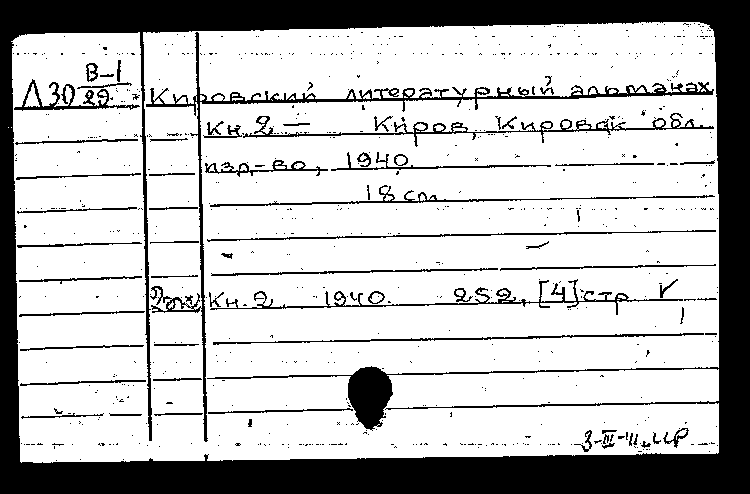 Л30 В-1/29 Кировский литературный альманах
Кн. 2 — Киров, Кировск. обл.
изд-во, 1940.
18 см.
2 экз Кн. 2. 1940. 252, [4] стр ✓
3-III-41